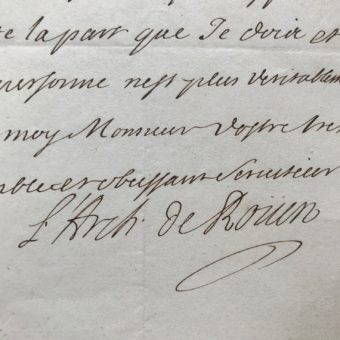 te la part que Je dois et
personne nest plus veritablem
moy Monsieur vostre tres
ble et obeissant Serviteur
L'Arch. de Roüen